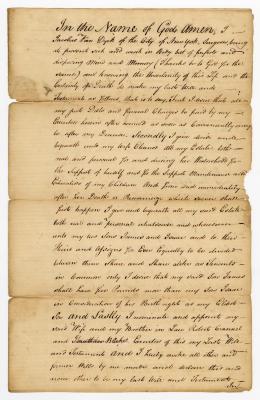 In the Name of God Amen, I
Jacobus Van Dyck of the City of New York, Surgeon, being
of perfect and sound Mind and Memory (Thanks be to God for the
same) and knowing the Uncertainty of this Life and the
Certainty of Death do make my last Will and
Testament as follows, that is to say, First I desire that all
my just Debts and funeral Charges be paid by my
Executors hereinafter named as soon as Conveniently may
be after my Decease. Secondly I give devise and
bequeath unto my Wife all my Estate both
real and personal for and during her Widowhood for
the Support of herself and for the Support Maintenance and
Education of my Children And from and immediately
after her Death or Remarriage which ever shall
first happen I give and bequeath all my said Estate
both real and personal whatsoever and wheresoever
unto my two Sons James and Isaac and to their
Heirs and Assigns for Ever Equally to be divided
between them Share and Share alike as Tenants
in Common only I desire that my said Son James
shall have five Pounds more than my Son Isaac
in Consideration of his Birth right as my Eldest
Son And Lastly I nominate and appoint my
said Wife and my Brother in Law Robert
and Executors of this my Last Will
and Testament And I hereby make all other and
former Wills by me made and declare this and
none other to be my last Will and Testament